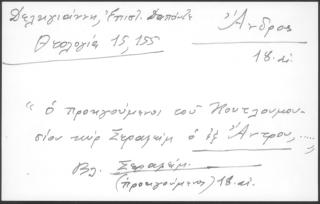 Δεληγιάννη, Ἐπιστ. Δαπόντε
Ἄνδρος
Θεολογία 15, 155
18. αἰ.
"ὁ προηγούμενος τοῦ Κουτλουμου-
σίου κύρ Σεραφείμ ὁ ἐξ Ἄντρου,.....
Βλ. Σεραφείμ.
(προηγούμενος) 18. αἰ.